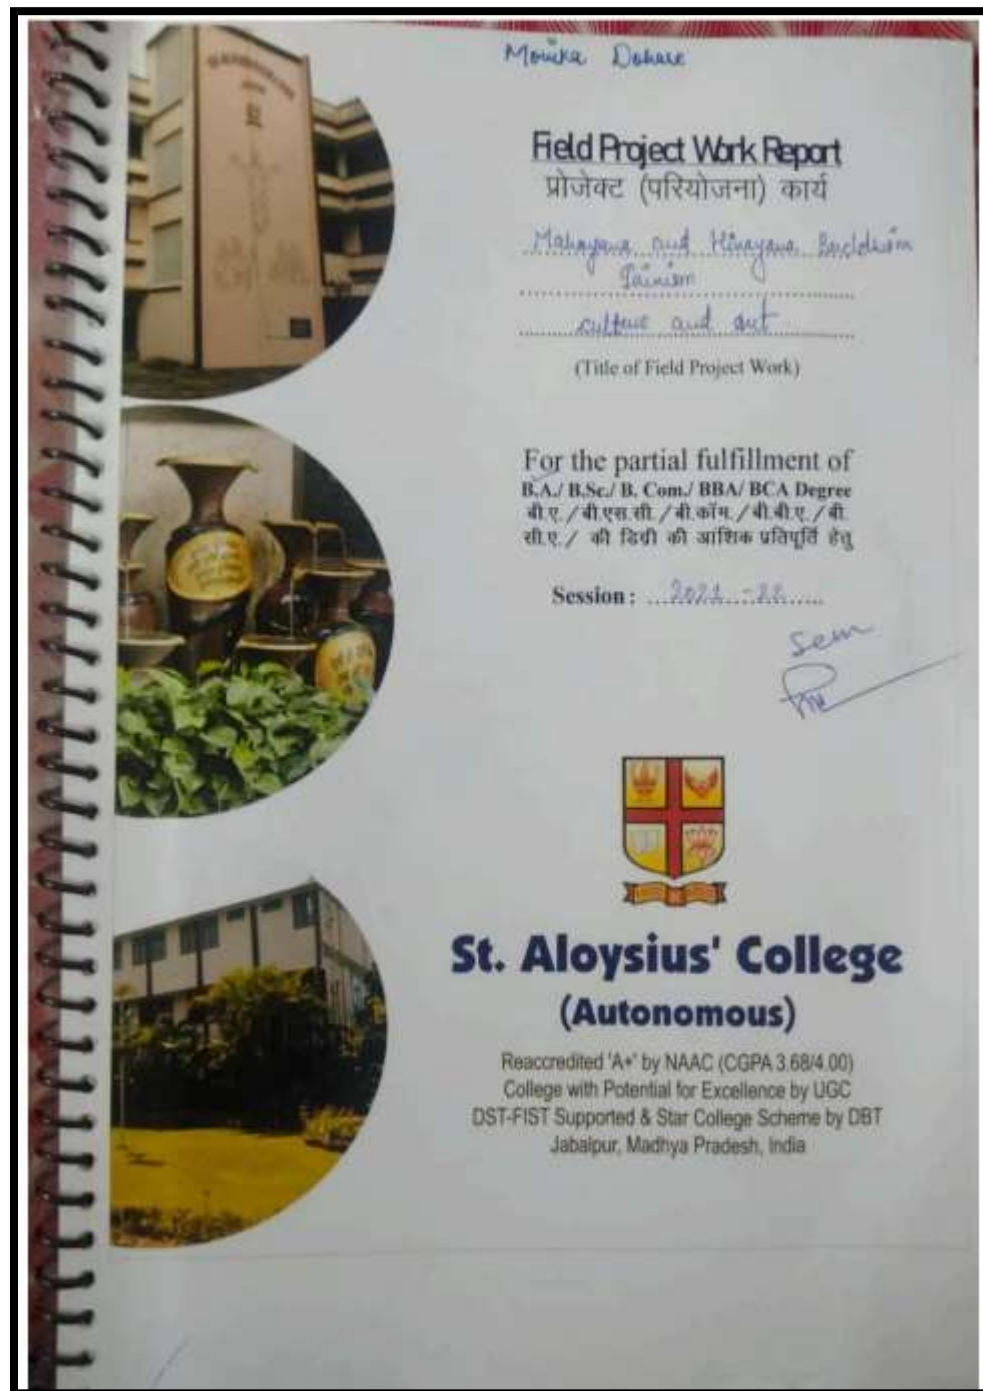 Monika Dohare
Field Project Work Report
प्रोजेक्ट (परियोजना) कार्य
Mahayana and Hinayana Buddhism
Jainism
culture and art
(Title of Field Project Work)
For the partial fulfillment of
B.A./ B.Sc./ B. Com./ BBA/ BCA Degree
बी.ए. / बी.एस.सी. / बी.कॉम. / बी.बी.ए. / बी.
सी.ए. / की डिग्री की आंशिक प्रतिपूर्ति हेतु
Session : 2021-22
Sem
St. Aloysius' College
(Autonomous)
Reaccredited 'A+' by NAAC (CGPA 3.68/4.00)
College with Potential for Excellence by UGC
DST-FIST Supported & Star College Scheme by DBT
Jabalpur, Madhya Pradesh, India